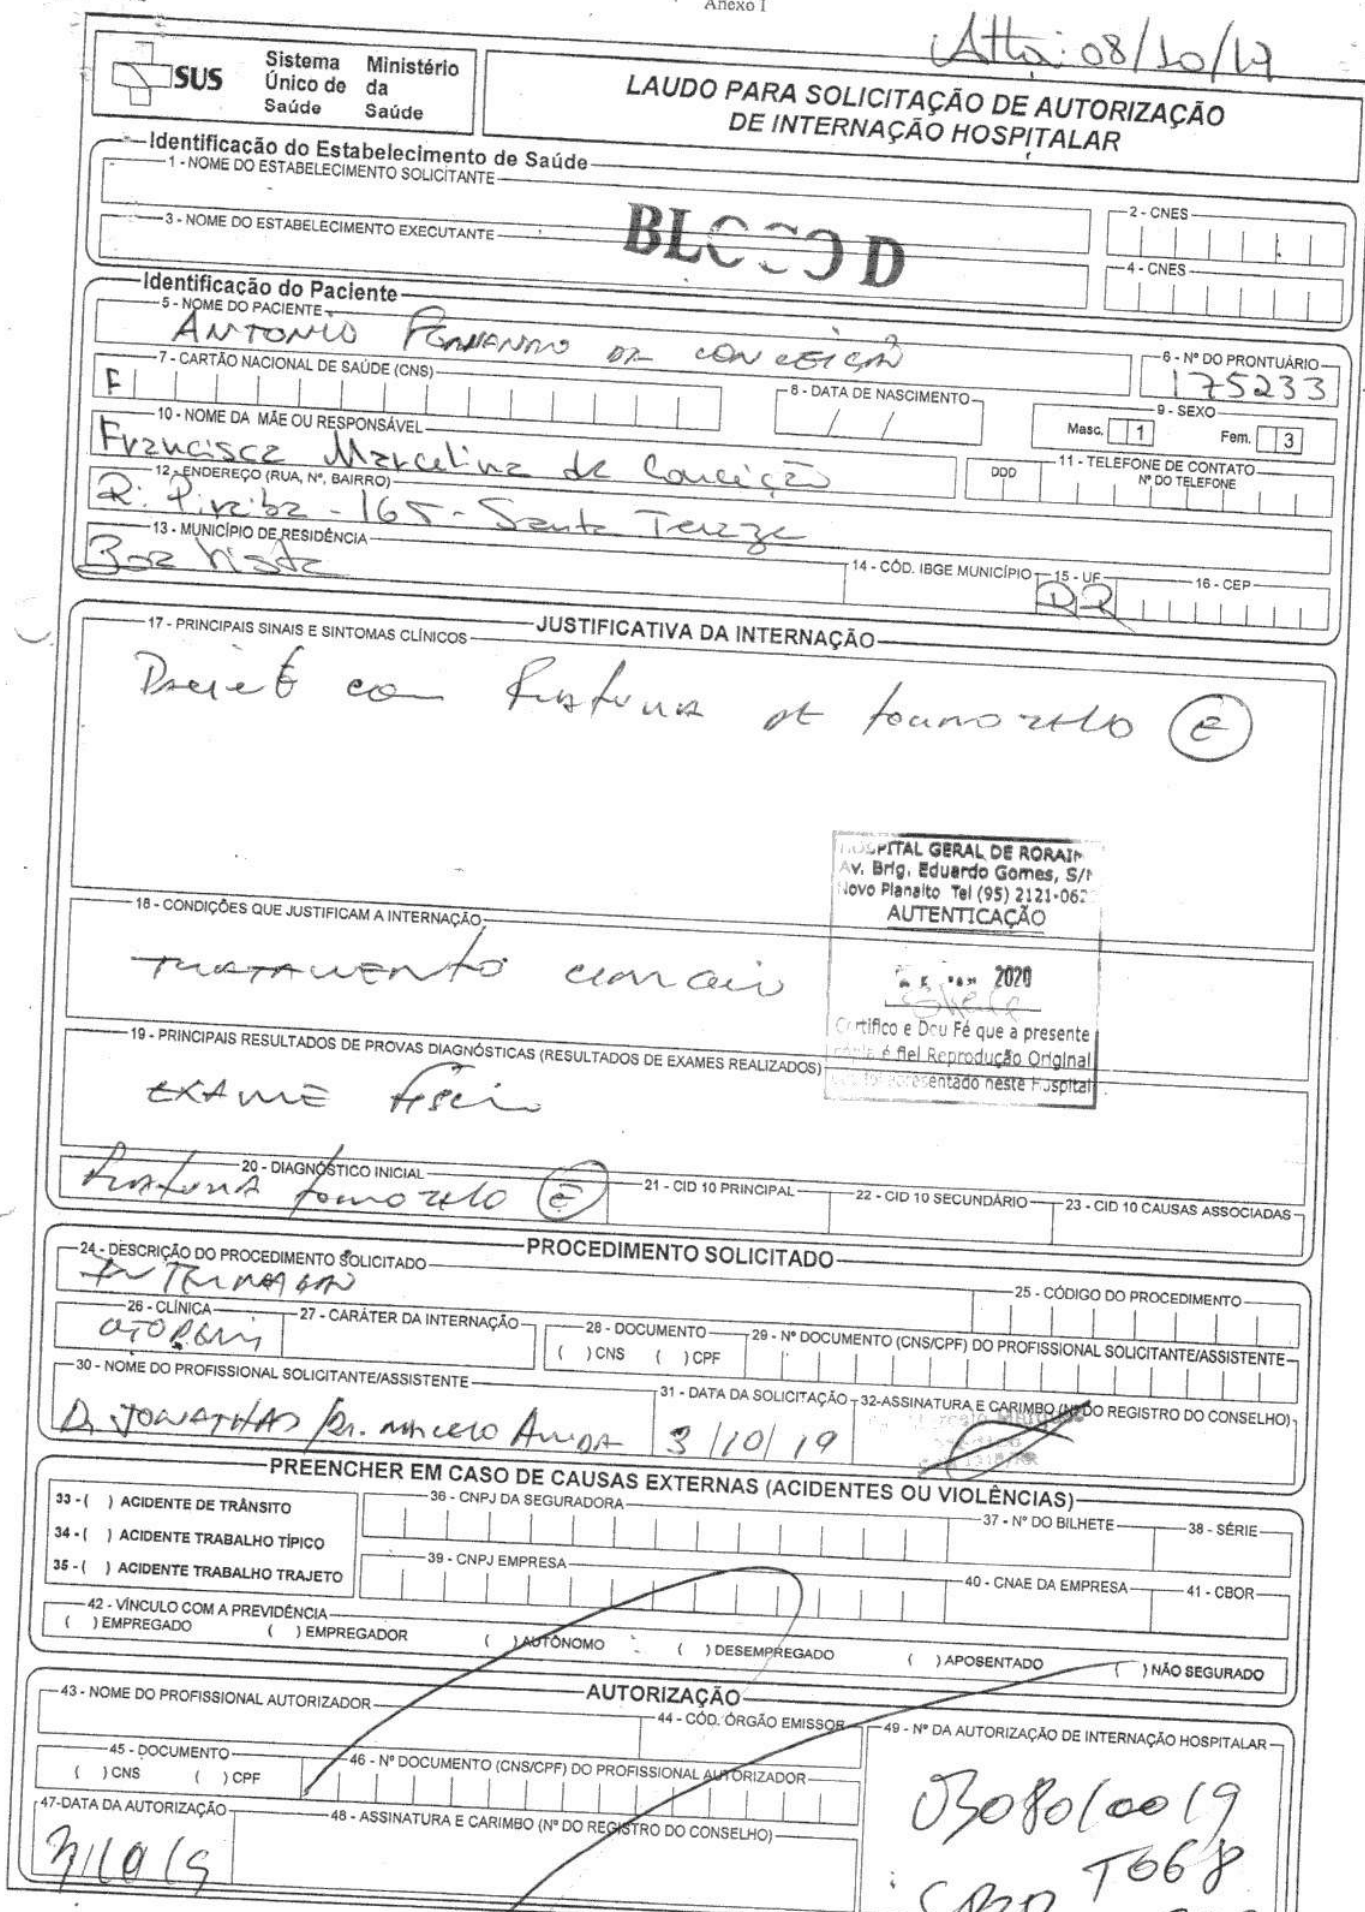 Anexo I
Alta: 08/10/19
SUS
Sistema Único de Saúde
Ministério da Saúde
LAUDO PARA SOLICITAÇÃO DE AUTORIZAÇÃO
DE INTERNAÇÃO HOSPITALAR
Identificação do Estabelecimento de Saúde
1 - NOME DO ESTABELECIMENTO SOLICITANTE
2 - CNES
3 - NOME DO ESTABELECIMENTO EXECUTANTE
BLOCO D
4 - CNES
Identificação do Paciente
5 - NOME DO PACIENTE
ANTONIO FERNANDO DA CONCEIÇÃO
6 - Nº DO PRONTUÁRIO
175233
7 - CARTÃO NACIONAL DE SAÚDE (CNS)
F
8 - DATA DE NASCIMENTO
/ /
9 - SEXO
Masc. 1 Fem. 3
10 - NOME DA MÃE OU RESPONSÁVEL
Francisca Marcelina da Conceição
11 - TELEFONE DE CONTATO
DDD Nº DO TELEFONE
12 - ENDEREÇO (RUA, Nº, BAIRRO)
R: Piraiba - 165 - Santa Tereza
13 - MUNICÍPIO DE RESIDÊNCIA
Boa Vista
14 - CÓD. IBGE MUNICÍPIO
15 - UF
RR
16 - CEP
JUSTIFICATIVA DA INTERNAÇÃO
17 - PRINCIPAIS SINAIS E SINTOMAS CLÍNICOS
com fratura de tornozelo E
HOSPITAL GERAL DE RORAIM
Av. Brig. Eduardo Gomes, S/N
Novo Planalto Tel (95) 2121-062
AUTENTICAÇÃO
2020
Certifico e Dou Fé que a presente
cópia é fiel Reprodução Original
apresentado neste Hospital
18 - CONDIÇÕES QUE JUSTIFICAM A INTERNAÇÃO
TRATAMENTO
19 - PRINCIPAIS RESULTADOS DE PROVAS DIAGNÓSTICAS (RESULTADOS DE EXAMES REALIZADOS)
EXAME físico
20 - DIAGNÓSTICO INICIAL
fratura tornozelo E
21 - CID 10 PRINCIPAL
22 - CID 10 SECUNDÁRIO
23 - CID 10 CAUSAS ASSOCIADAS
PROCEDIMENTO SOLICITADO
24 - DESCRIÇÃO DO PROCEDIMENTO SOLICITADO
INTERNAÇÃO
25 - CÓDIGO DO PROCEDIMENTO
26 - CLÍNICA
27 - CARÁTER DA INTERNAÇÃO
28 - DOCUMENTO
( ) CNS ( ) CPF
29 - Nº DOCUMENTO (CNS/CPF) DO PROFISSIONAL SOLICITANTE/ASSISTENTE
30 - NOME DO PROFISSIONAL SOLICITANTE/ASSISTENTE
Dr. JONATHAS / Dr. Marcelo
31 - DATA DA SOLICITAÇÃO
3/10/19
32-ASSINATURA E CARIMBO (Nº DO REGISTRO DO CONSELHO)
PREENCHER EM CASO DE CAUSAS EXTERNAS (ACIDENTES OU VIOLÊNCIAS)
33 - ( ) ACIDENTE DE TRÂNSITO
34 - ( ) ACIDENTE TRABALHO TÍPICO
35 - ( ) ACIDENTE TRABALHO TRAJETO
36 - CNPJ DA SEGURADORA
37 - Nº DO BILHETE
38 - SÉRIE
39 - CNPJ EMPRESA
40 - CNAE DA EMPRESA
41 - CBOR
42 - VÍNCULO COM A PREVIDÊNCIA
( ) EMPREGADO ( ) EMPREGADOR ( ) AUTÔNOMO ( ) DESEMPREGADO ( ) APOSENTADO ( ) NÃO SEGURADO
AUTORIZAÇÃO
43 - NOME DO PROFISSIONAL AUTORIZADOR
44 - CÓD. ÓRGÃO EMISSOR
49 - Nº DA AUTORIZAÇÃO DE INTERNAÇÃO HOSPITALAR
45 - DOCUMENTO
( ) CNS ( ) CPF
46 - Nº DOCUMENTO (CNS/CPF) DO PROFISSIONAL AUTORIZADOR
0308010019
T068
47-DATA DA AUTORIZAÇÃO
48 - ASSINATURA E CARIMBO (Nº DO REGISTRO DO CONSELHO)